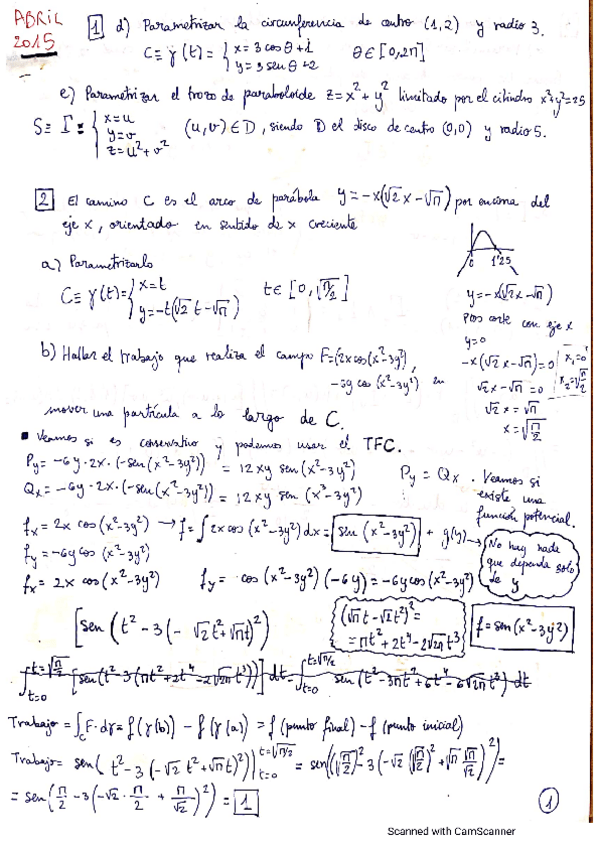 ABRIL
2015
1 d) Parametrizar la circunferencia de centro (1,2) y radio 3.
C ≡ γ(t) = { x = 3 cos θ + 1
y = 3 sen θ + 2
θ ∈ [0, 2π]
e) Parametrizar el trozo de paraboloide z = x² + y² limitado por el cilindro x²+y²=25
S ≡ Γ ≡ { x = u
y = v
z = u² + v²
(u,v) ∈ D, siendo D el disco de centro (0,0) y radio 5.
2 El camino C es el arco de parábola y = -x(√2 x - √π) por encima del
eje x, orientado en sentido de x creciente
a) Parametrizarlo
C ≡ γ(t) = { x = t
y = -t(√2 t - √π)
t ∈ [0, √π/2]
C 1'25
y = -x(√2x - √π)
ptos corte con eje x
y=0
-x(√2x - √π) = 0
x₁=0
x₂=√π/2
√2x - √π = 0
√2 x = √π
x = √π/2
b) Hallar el trabajo que realiza el campo F=(2x cos(x²-3y²),
-6y cos(x²-3y²)) en
mover una partícula a lo largo de C.
▪ Veamos si es conservativo y podemos usar el TFC.
Py = -6y · 2x · (-sen(x²-3y²)) = 12xy sen(x²-3y²)
Qx = -6y · 2x · (-sen(x²-3y²)) = 12xy sen(x²-3y²)
Py = Qx. Veamos si
existe una
función potencial.
fx = 2x cos(x²-3y²) → f = ∫ 2x cos(x²-3y²) dx = sen(x²-3y²) + g(y) →
No hay nada
que dependa solo
de y
fy = -6y cos(x²-3y²)
fx = 2x cos(x²-3y²) fy = cos(x²-3y²)(-6y) = -6y cos(x²-3y²)
[sen(t² - 3(-√2t² + √πt)²)
(√πt - √2t²)² =
= πt² + 2t⁴ - 2√2π t³
f = sen(x²-3y²)
∫ t=√π/2 t=0 [sen(t² - 3(πt² + 2t⁴ - 2√2π t³))] dt = ∫ t=√π/2 t=0 sen(t² - 3πt² + 6t⁴ - 6√2π t³) dt
Trabajo = ∫C F · dγ = f(γ(b)) - f(γ(a)) = f(punto final) - f(punto inicial)
Trabajo = sen(t² - 3(-√2 t² + √π t)²)] t=√π/2 t=0 = sen((√π/2)² - 3(-√2 (√π/2)² + √π √π/2)²) =
= sen(π/2 - 3(-√2 · π/2 + π/√2)²) = 1
1
Scanned with CamScanner